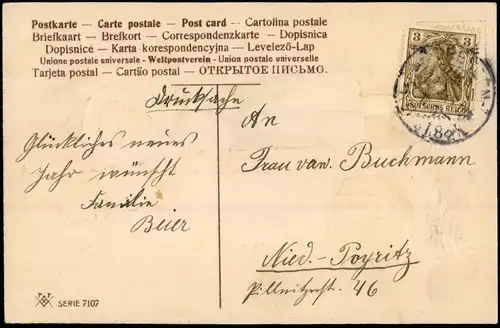 Postkarte — Carte postale — Post card — Cartolina postale
Briefkaart — Brefkort — Correspondenzkarte — Dopisnica
Dopisnice — Karta korespondencyjna — Levelező-Lap
Unione postale universale — Weltpostverein — Union postale universelle
Tarjeta postal — Cartão postal — ОТКРЫТОЕ ПИСЬМО.
3 3
DEUTSCHES REICH
Drucksache
Glückliches neues
Jahr wünscht
Familie
Beier
An
Frau vaw. Buchmann
Nied.-Poyritz
Pillnitzerstr. 46
SERIE 7107